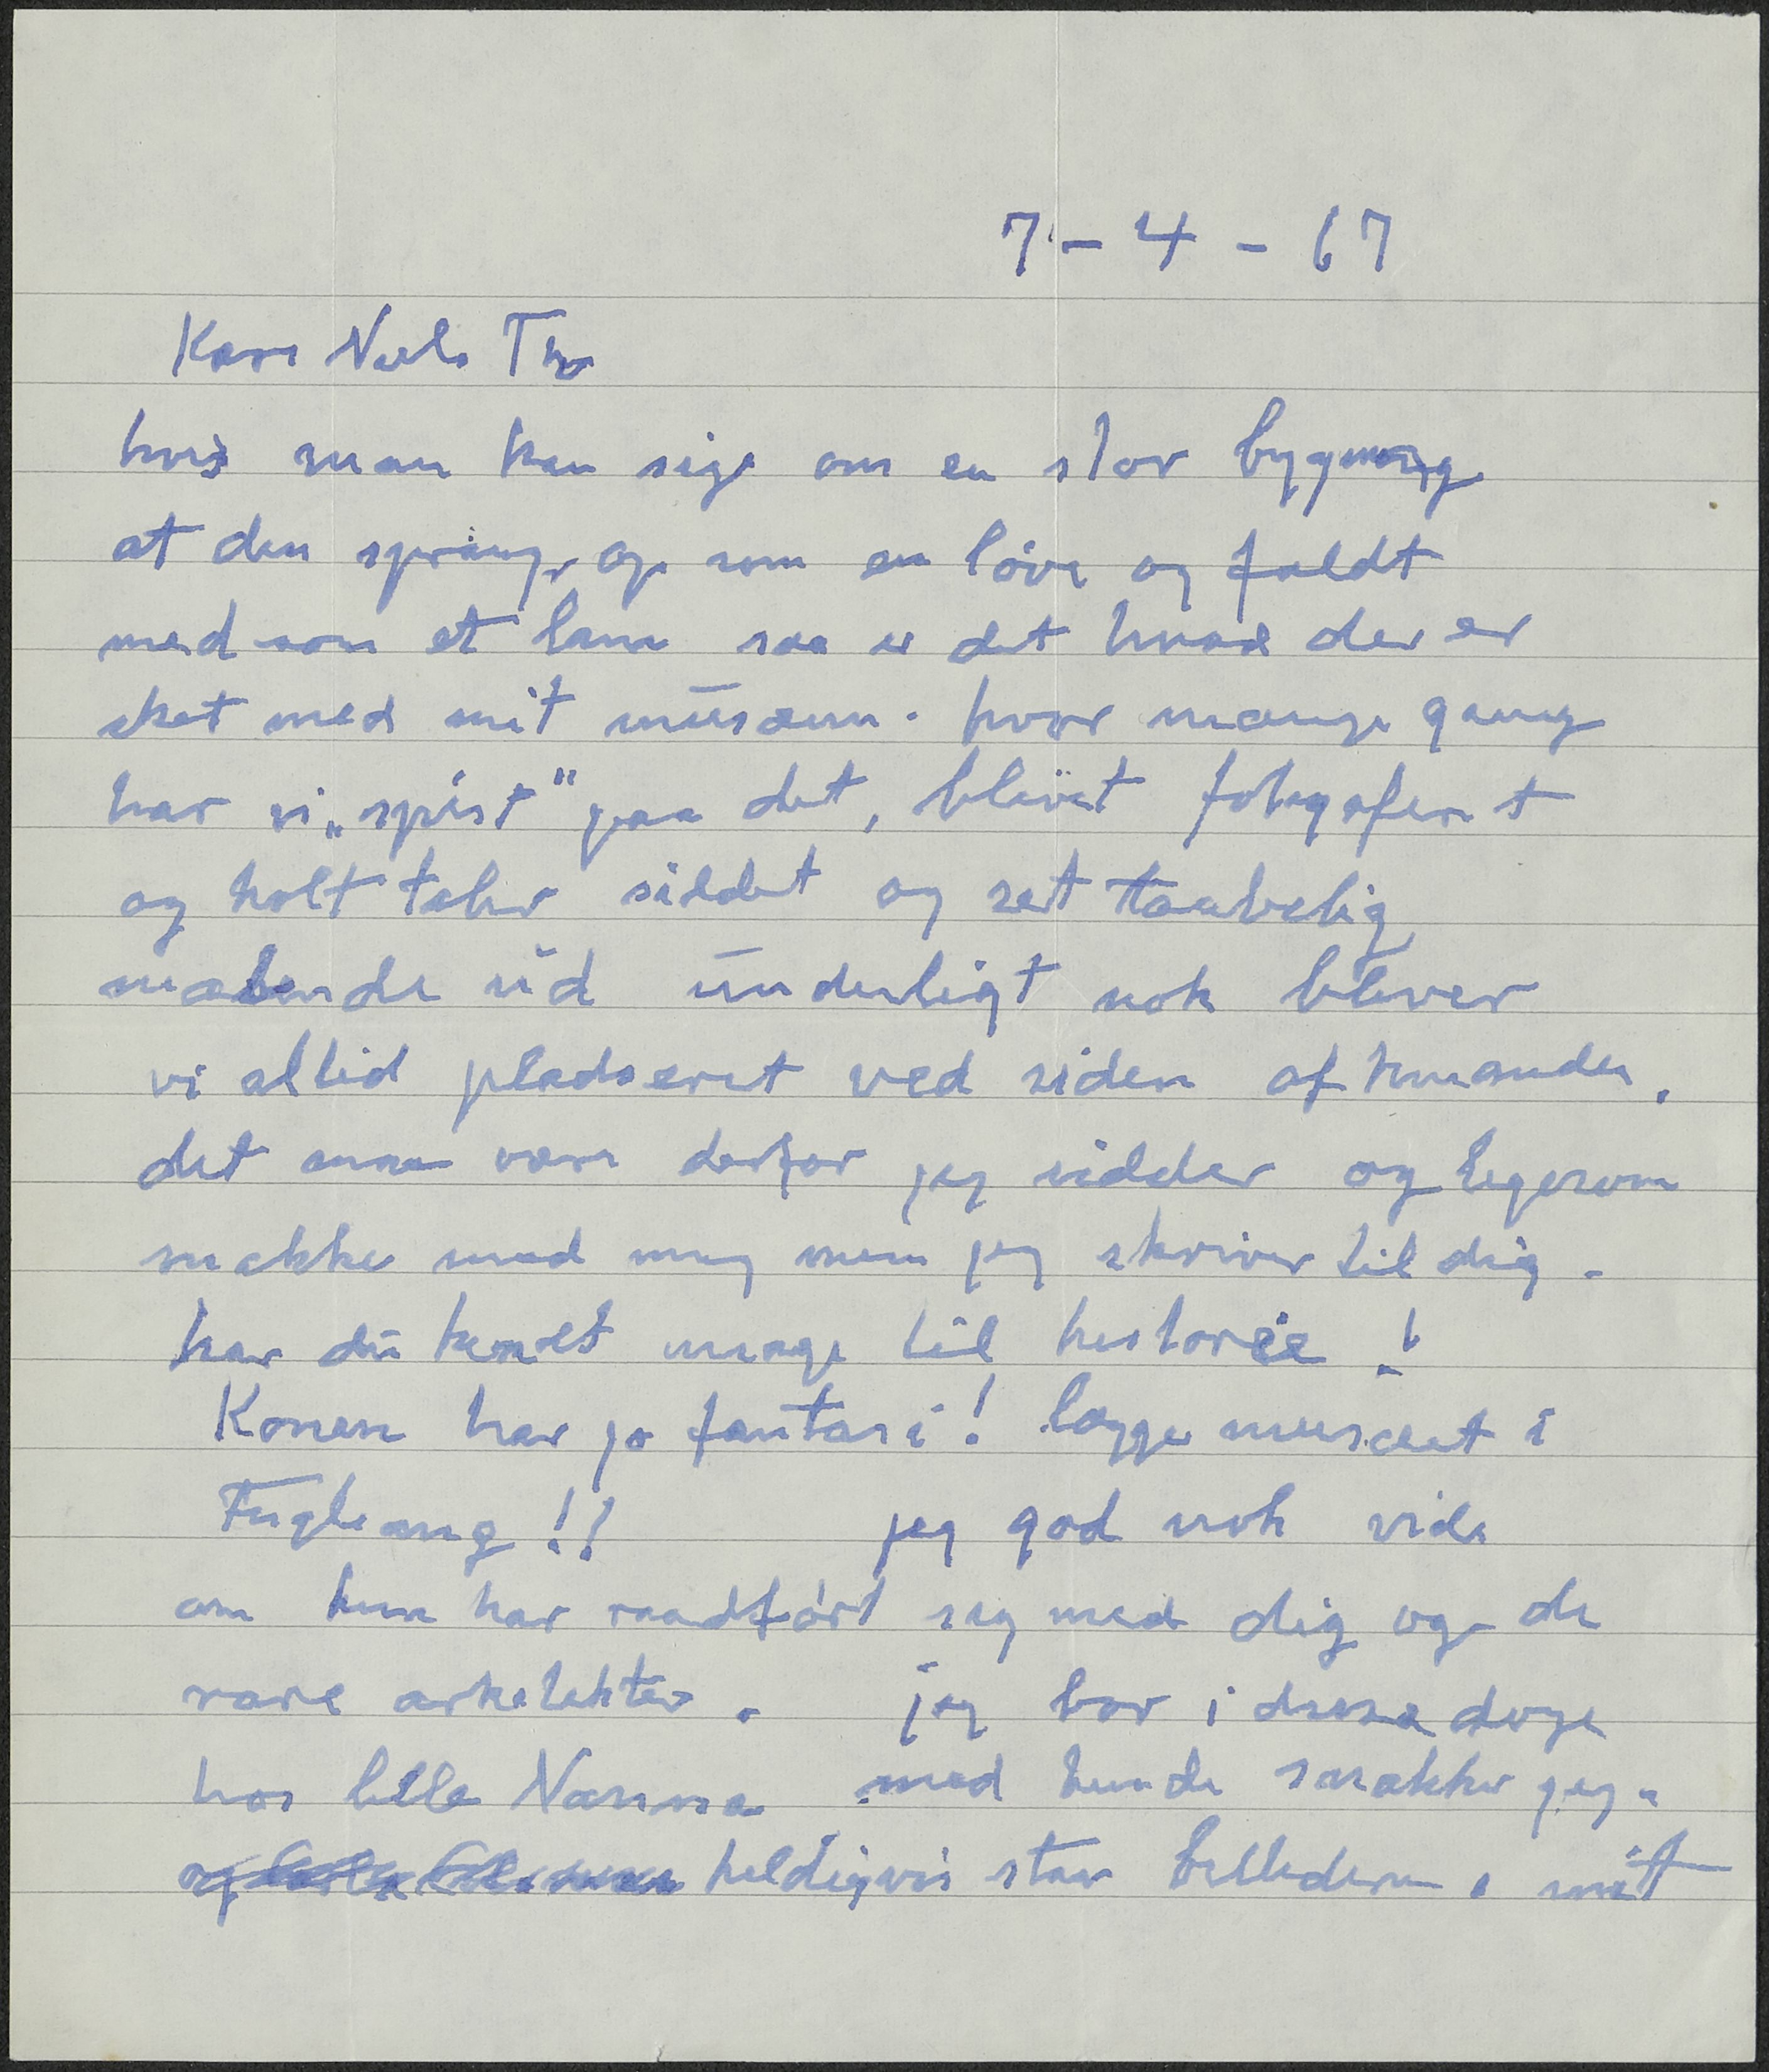 7-4-67
Kære Niels Th
hvis man kan sige om en stor bygning
at den sprang op som en løve og faldt
med som et lam saa er det hvad der er
sket med mit musæum. hvor mange gang
har vi „spist" paa det, blevet fotograferet
og holt taler siddet og set taabelig
maabende ud underligt nok bliver
vi altid pladseret ved siden af hinanden.
det maa være derfor jeg sidder og ligesom
snakke med mig mens jeg skriver til dig.
har du kendt mage til historie!
Konen har jo fantasi! lægge museet i
Fugleang!! jeg god nok vide
om hun har raadført sig med dig og de
rare arketekter. jeg bor i disse dage
hos lille Nanna med hende snakker jeg.
og heldigvis staar billederne i mit